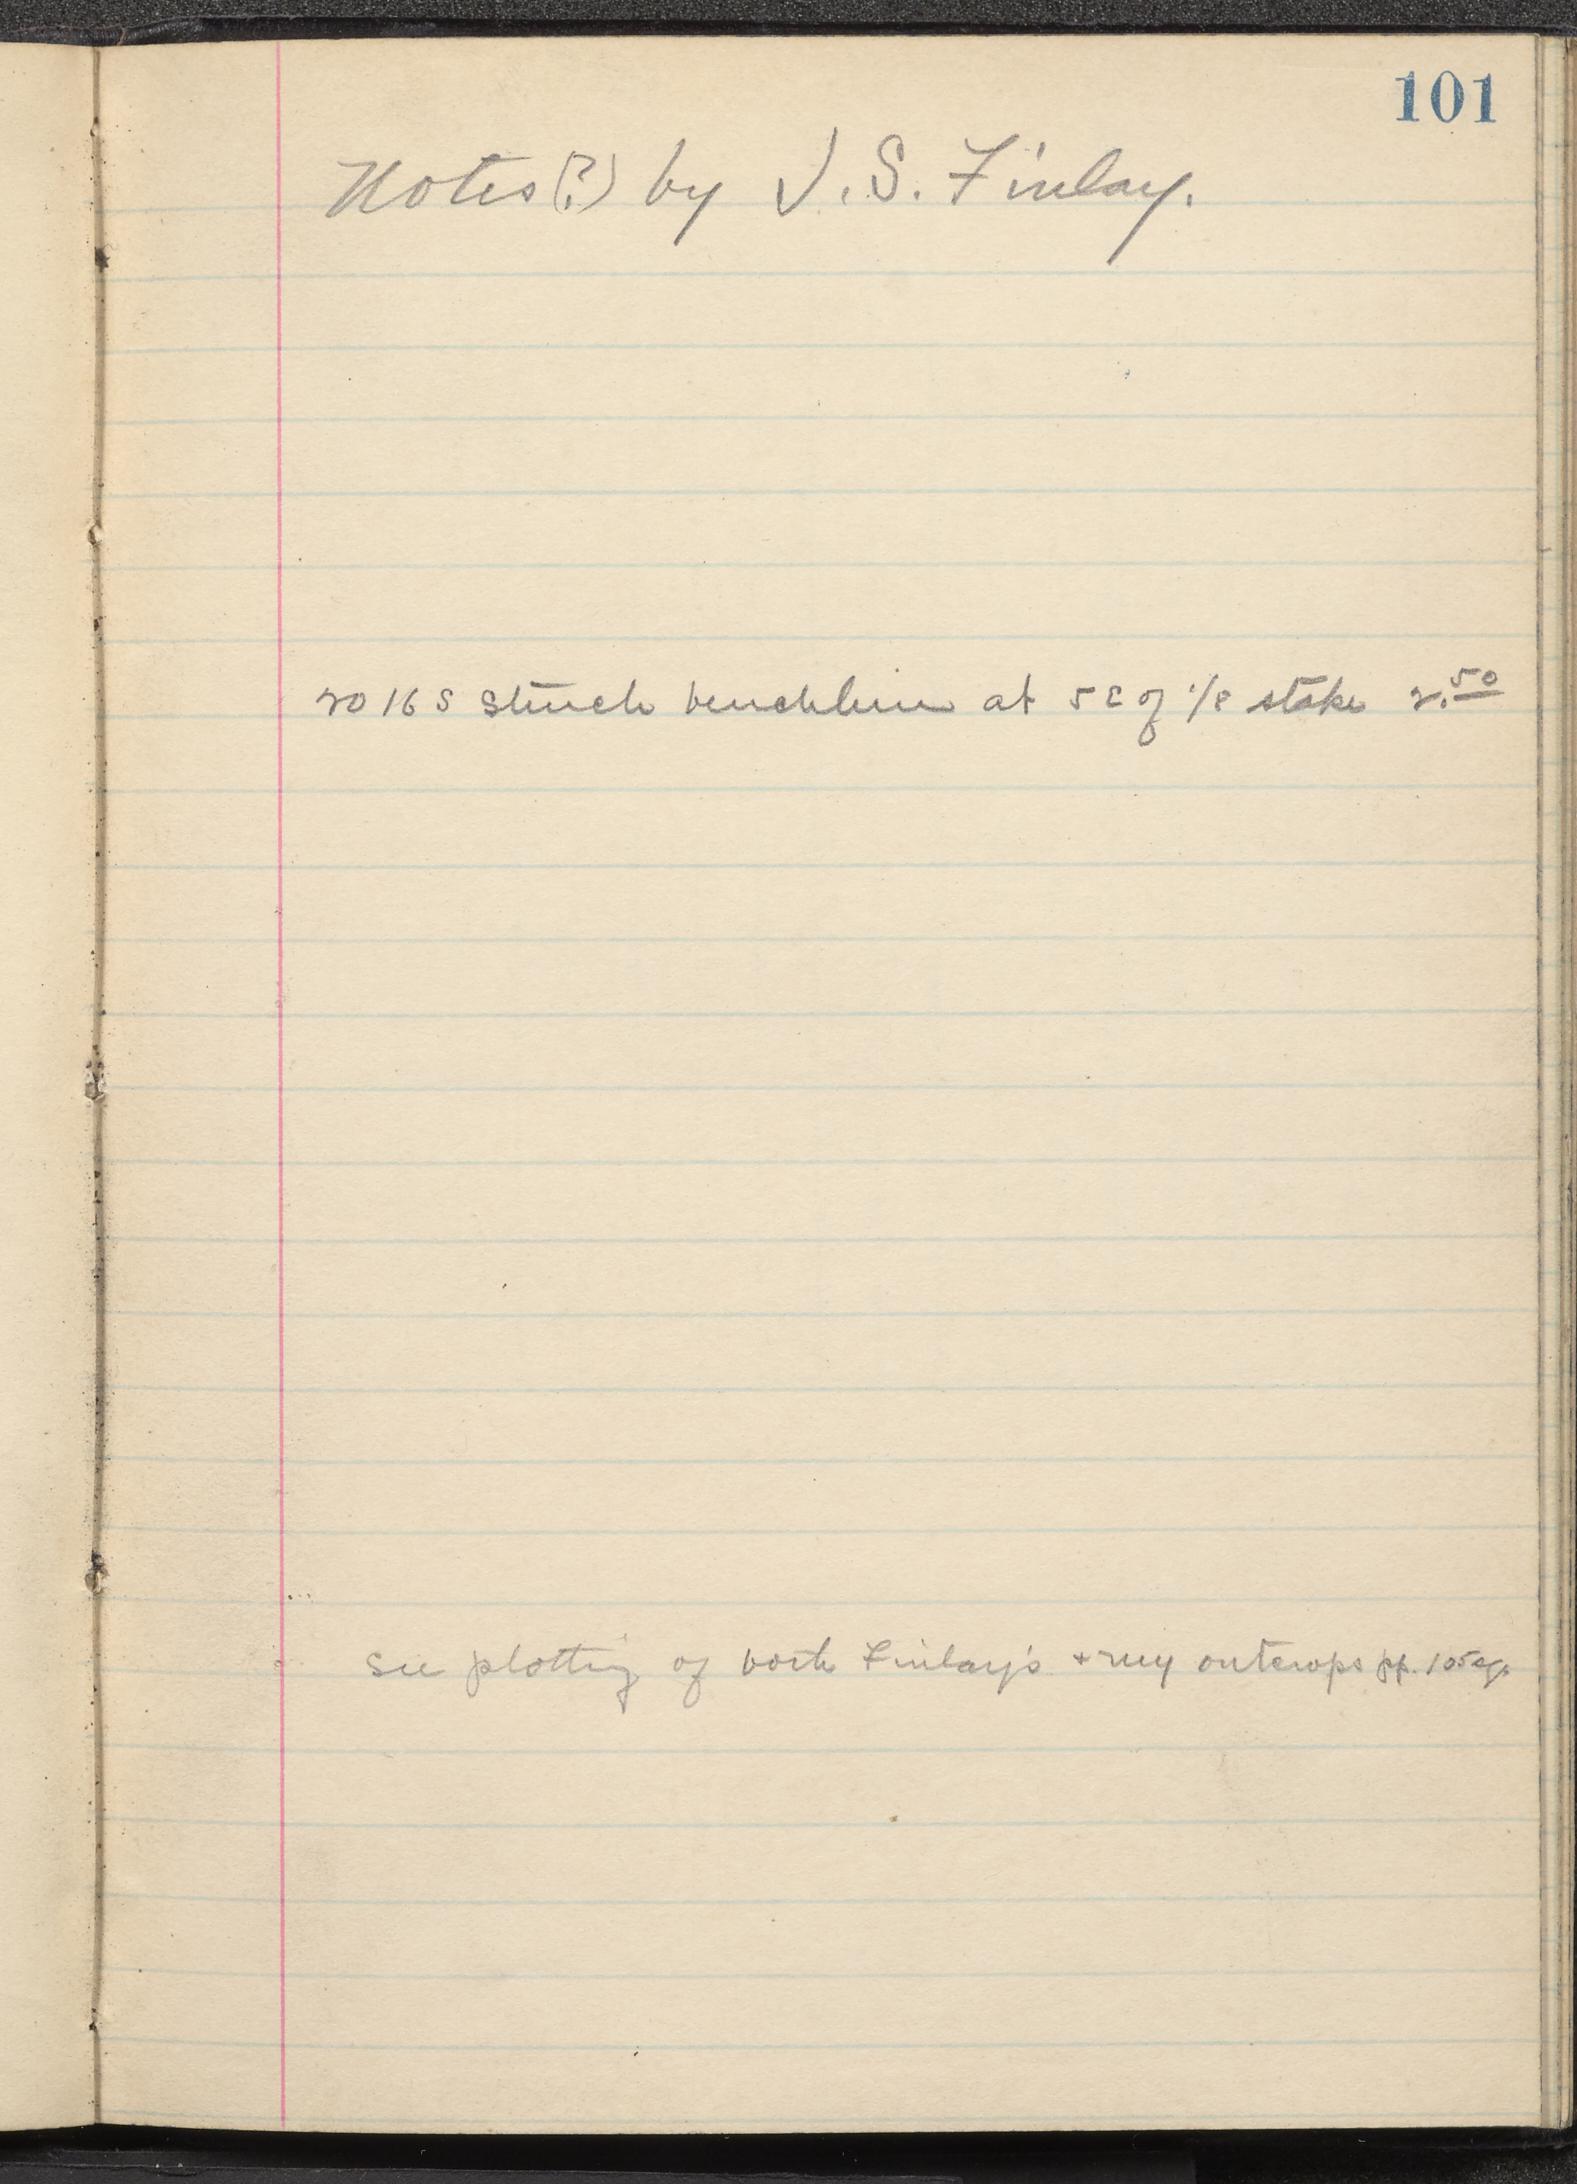 101
Notes(?) by J. S. Finlay.
2016 S struck benchline at 5 E of 1/8 stake 2.50
see plotting of both Finlay's + my outcrops pp. 105